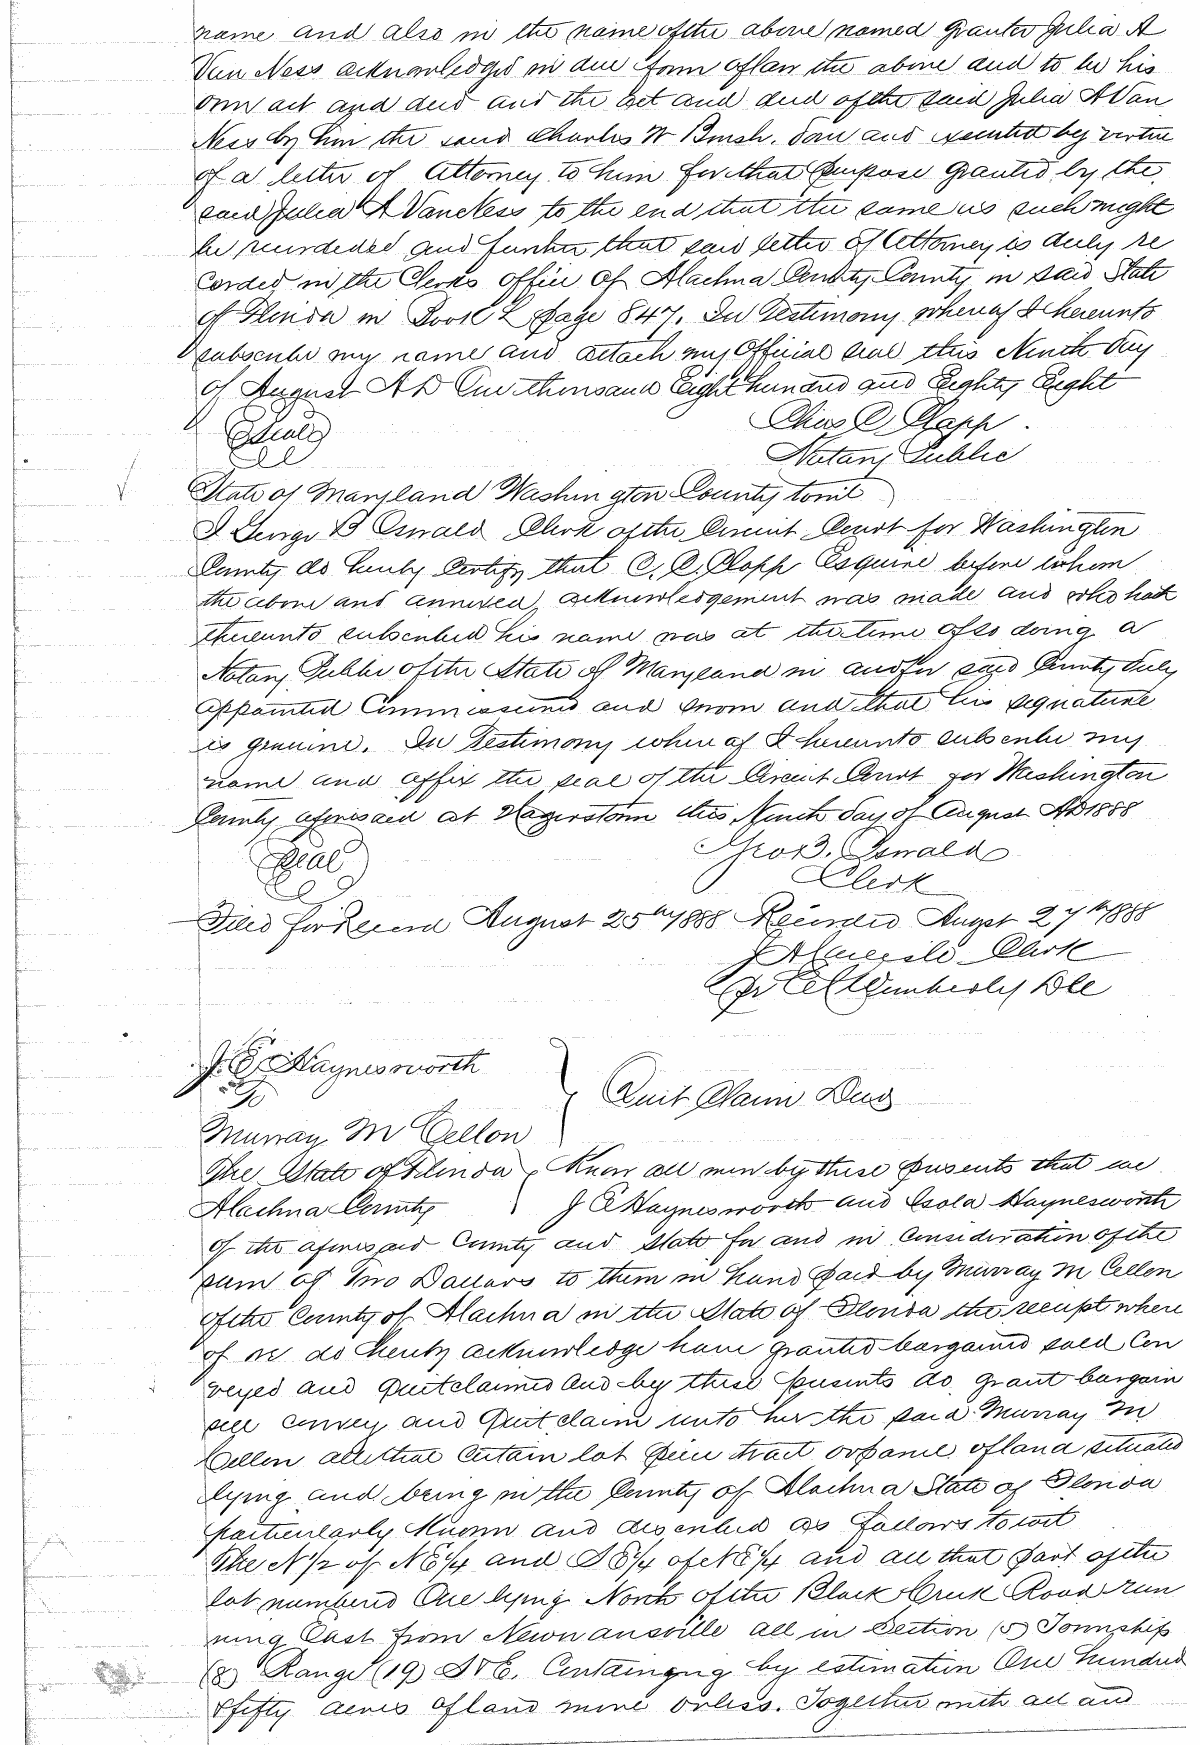 name and also in the name of the above named grantor Julia A
Van Ness acknowledged in due form of law the above deed to be his
own act and deed and the act and deed of the said Julia A Van
Ness by him the said Charles W Bush. done and executed by virtue
of a letter of Attorney to him for that purpose granted by the
said Julia A Van Ness to the end that the same as such might
be recordeded and further that said letter of Attorney is duly re
corded in the Clerks office of Alachua County County in said State
of Florida in Book L page 847. In Testimony whereof I hereunto
subscribe my name and attach my Official seal this Ninth day
of August A D One thousand Eight hundred and Eighty Eight
Seal
Chas C Clapp.
Notary Public
State of Maryland Washington County towit
I George B Oswald Clerk of the Circuit Court for Washington
County do hereby Certify that C. C. Clapp Esquire before whom
the above and annexed acknowledgement was made and who hath
thereunto subscribed his name was at the time of so doing a
Notary Public of the State of Maryland in and for said County duly
appointed Commissioned and sworn and that his signature
is genuine. In Testimony whereof I hereunto subscribe my
name and affix the seal of the Circuit Court for Washington
County aforesaid at Hagerstown this Ninth day of August AD 1888
Seal
Geo B. Oswald
Clerk
Filed for Record August 25th 1888 Recorded Augst 27th 1888
Clerk
Wimberly
J. E. Haynesworth
To
Quit Claim Deed
Murray M Cellon
The State of Florida Know all men by these presents that we
Alachua County J E Haynesworth and Isola Haynesworth
of the aforesaid County and State for and in Consideration of the
sum of Two Dollars to them in hand paid by Murray M Cellon
of the County of Alachua in the State of Florida the receipt where
of we do hereby acknowledge have granted bargained sold Con
veyed and Quitclaimed and by these presents do grant bargain
sell convey and Quit claim unto her the said Murray M
Cellon all that certain lot piece tract or parcel of land situated
lying and being in the County of Alachua State of Florida
particularly Known and described as follows to wit
The N 1/2 of NE 1/4 and SE 1/4 of NE 1/4 and all that part of the
lot numbered One lying North of the Black Creek Road run
ning East from Newnansville all in Section (5) Township
(8) Range (19) S & E. Containgng by estimation One hundred
& fifty acres of land more or less. Together with all and